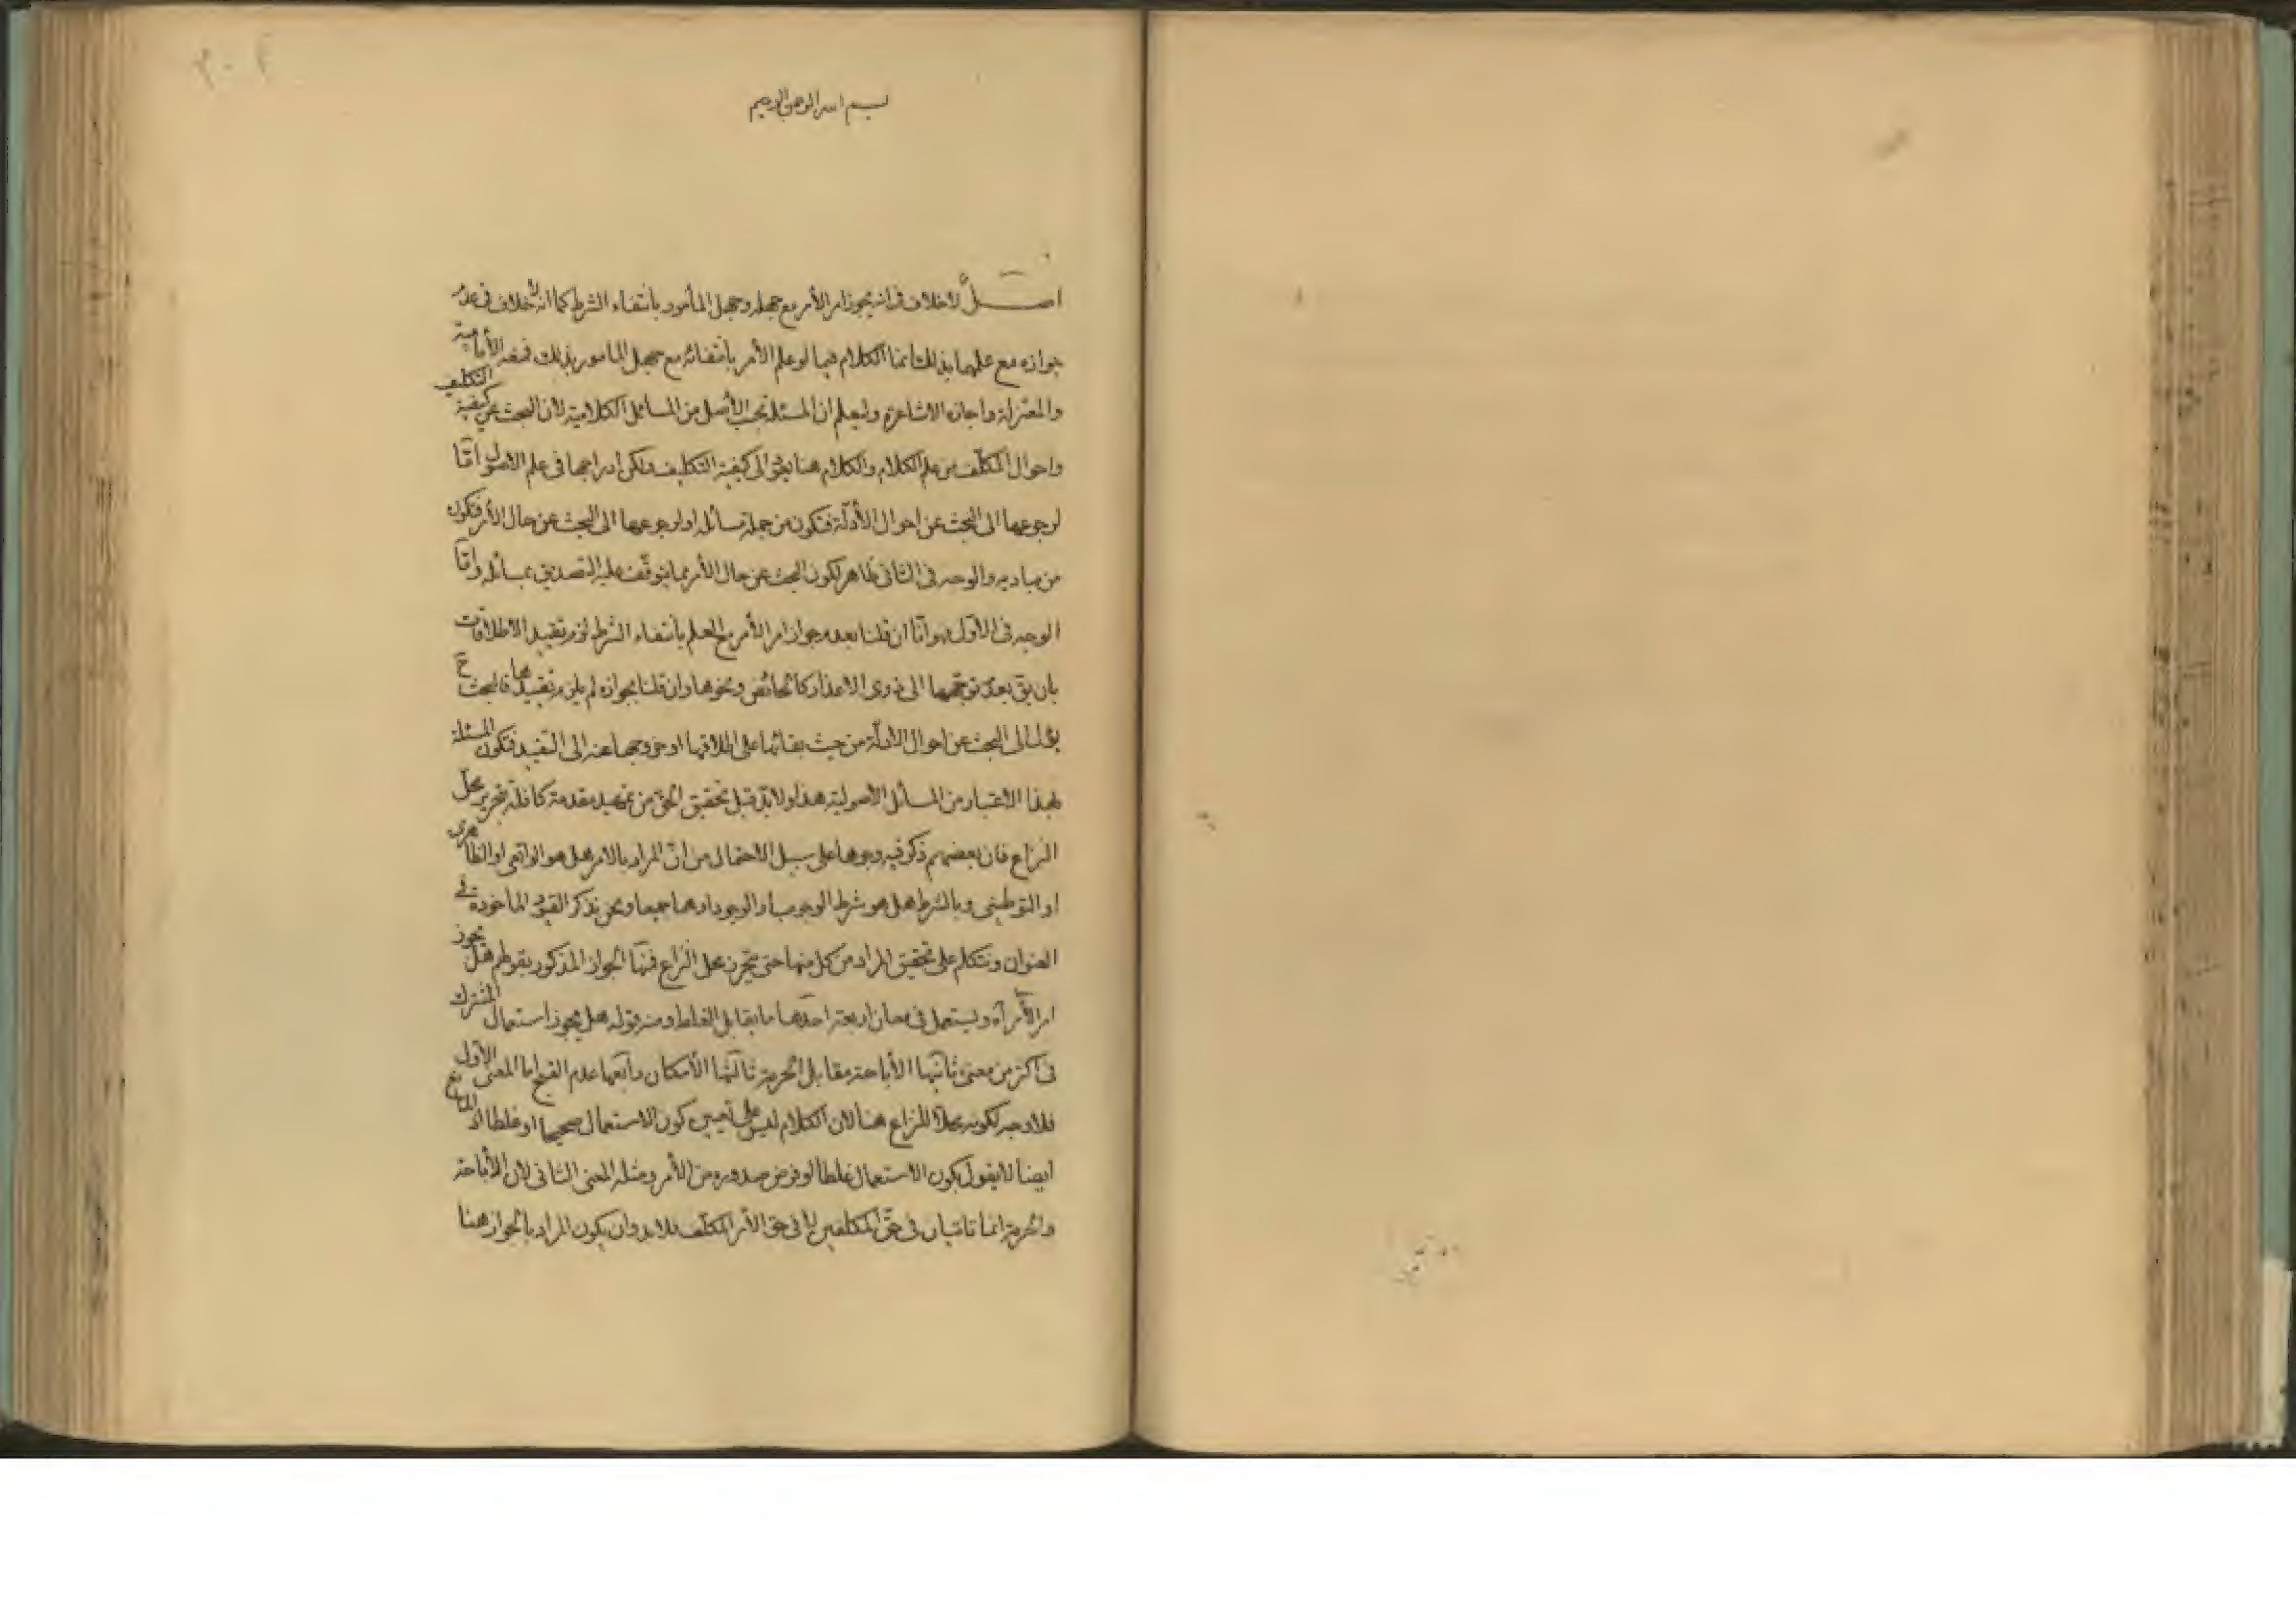 بسم الله الرحمن الرحيم
اصل لا خلاف فى انه يجوز امر الأمر مع جهله وجهل المأمور بانتفاء الشرط كما انه لا خلاف فى عدم
جوازه مع علمهما بذلك انما الكلام فيما لو علم الأمر بانتفائه مع جهل المامور بذلك فمنعه الأمامية
والمعتزلة واجازه الاشاعرة وليعلم ان المسئلة بحسب الأصل من المسائل الكلامية لأن البحث عن كيفية التكليف
واحوال المكلّف من علم الكلام والكلام هنا يؤل الى كيفية التكليف ولكن ادراجها فى علم الاصول امّا
لرجوعها الى البحث عن احوال الأدلّة فتكون من جملة مسائله او لرجوعها الى البحث عن حال الأمر فتكون
من مباديه والوجه فى الثانى ظاهر لكون البحث عن حال الأمر مما يتوقّف عليه التصديق بمسائله وامّا
الوجه فى الأوّل هو انّا ان قلنا بعدم جواز امر الأمر مع العلم بانتفاء الشرط لزم تقييد الاطلاقات
بان يق بعدم توجّهها الى ذوى الاعذار كالحائض ونحوها وان قلنا بجوازه لم يلزم تقييدها فالبحث ح
يؤل الى البحث عن احوال الادلّة من حيث بقائها على اطلاقها او خروجها عنه الى التقييد فتكون المسئلة
بهذا الاعتبار من المسائل الاصولية هذا ولابدّ قبل تحقيق الحق من تمهيد مقدمة كافلة بتحرير محل
النزاع فان بعضهم ذكر فيه وجوها على سبيل الاحتمال من انّ المراد بالامر هل هو الواقعى او الظاهرى
او التوطينى وبالشرط هل هو شرط الوجوب او الوجود او هما جميعا ونحن نذكر القيود الماخوذة فى
العنوان ونتكلم على تحقيق المراد من كل منها حتى يتحرر محل النزاع فمنها الجواز المذكور بقولهم هل يجوز
امر الأمر آه ويستعمل فى معان اربعة احدها ما يقابل الغلط ومنه قوله هل يجوز استعمال المشترك
فى اكثر من معنى ثانيها الأباحة مقابل الحرمة ثالثها الأمكان رابعها عدم القبح اما المعنى الاوّل
فلا وجه لكونه محلّا للنزاع هنا لان الكلام ليس على تعيين كون الاستعمال صحيحا او غلطا اذ المانع
ايضا لا يقول بكون الاستعمال غلطا لو فرض صدوره من الأمر ومثله المعنى الثانى لان الأباحة
والحرمة انما تاتيان فى حقّ المكلفين لا فى حق الأمر المكلّف فلابد وان يكون المراد بالجواز هنا